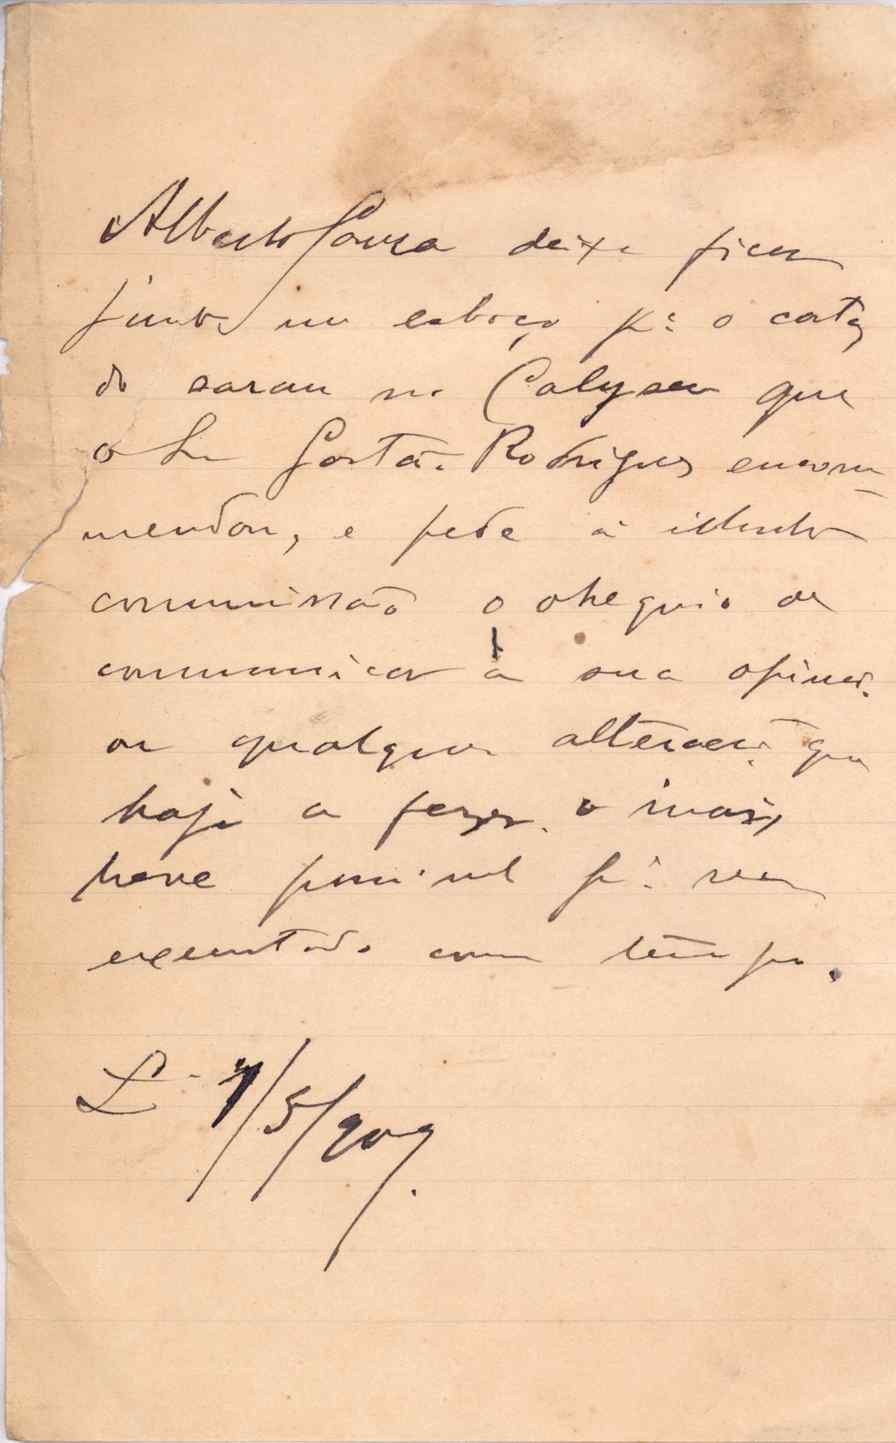 Alberto Souza deixa ficar
junto um esboço pª o cartaz
do sarau no Colyseu que
o Sr Gastão Rodrigues encom-
mendou, e pede á illustre
commissão o obsequio de
communicar a sua opinião
ou qualquer alteração que
haja a fazer, o mais
breve possivel pª ser
executado com tempo.
L. 7/5/909.